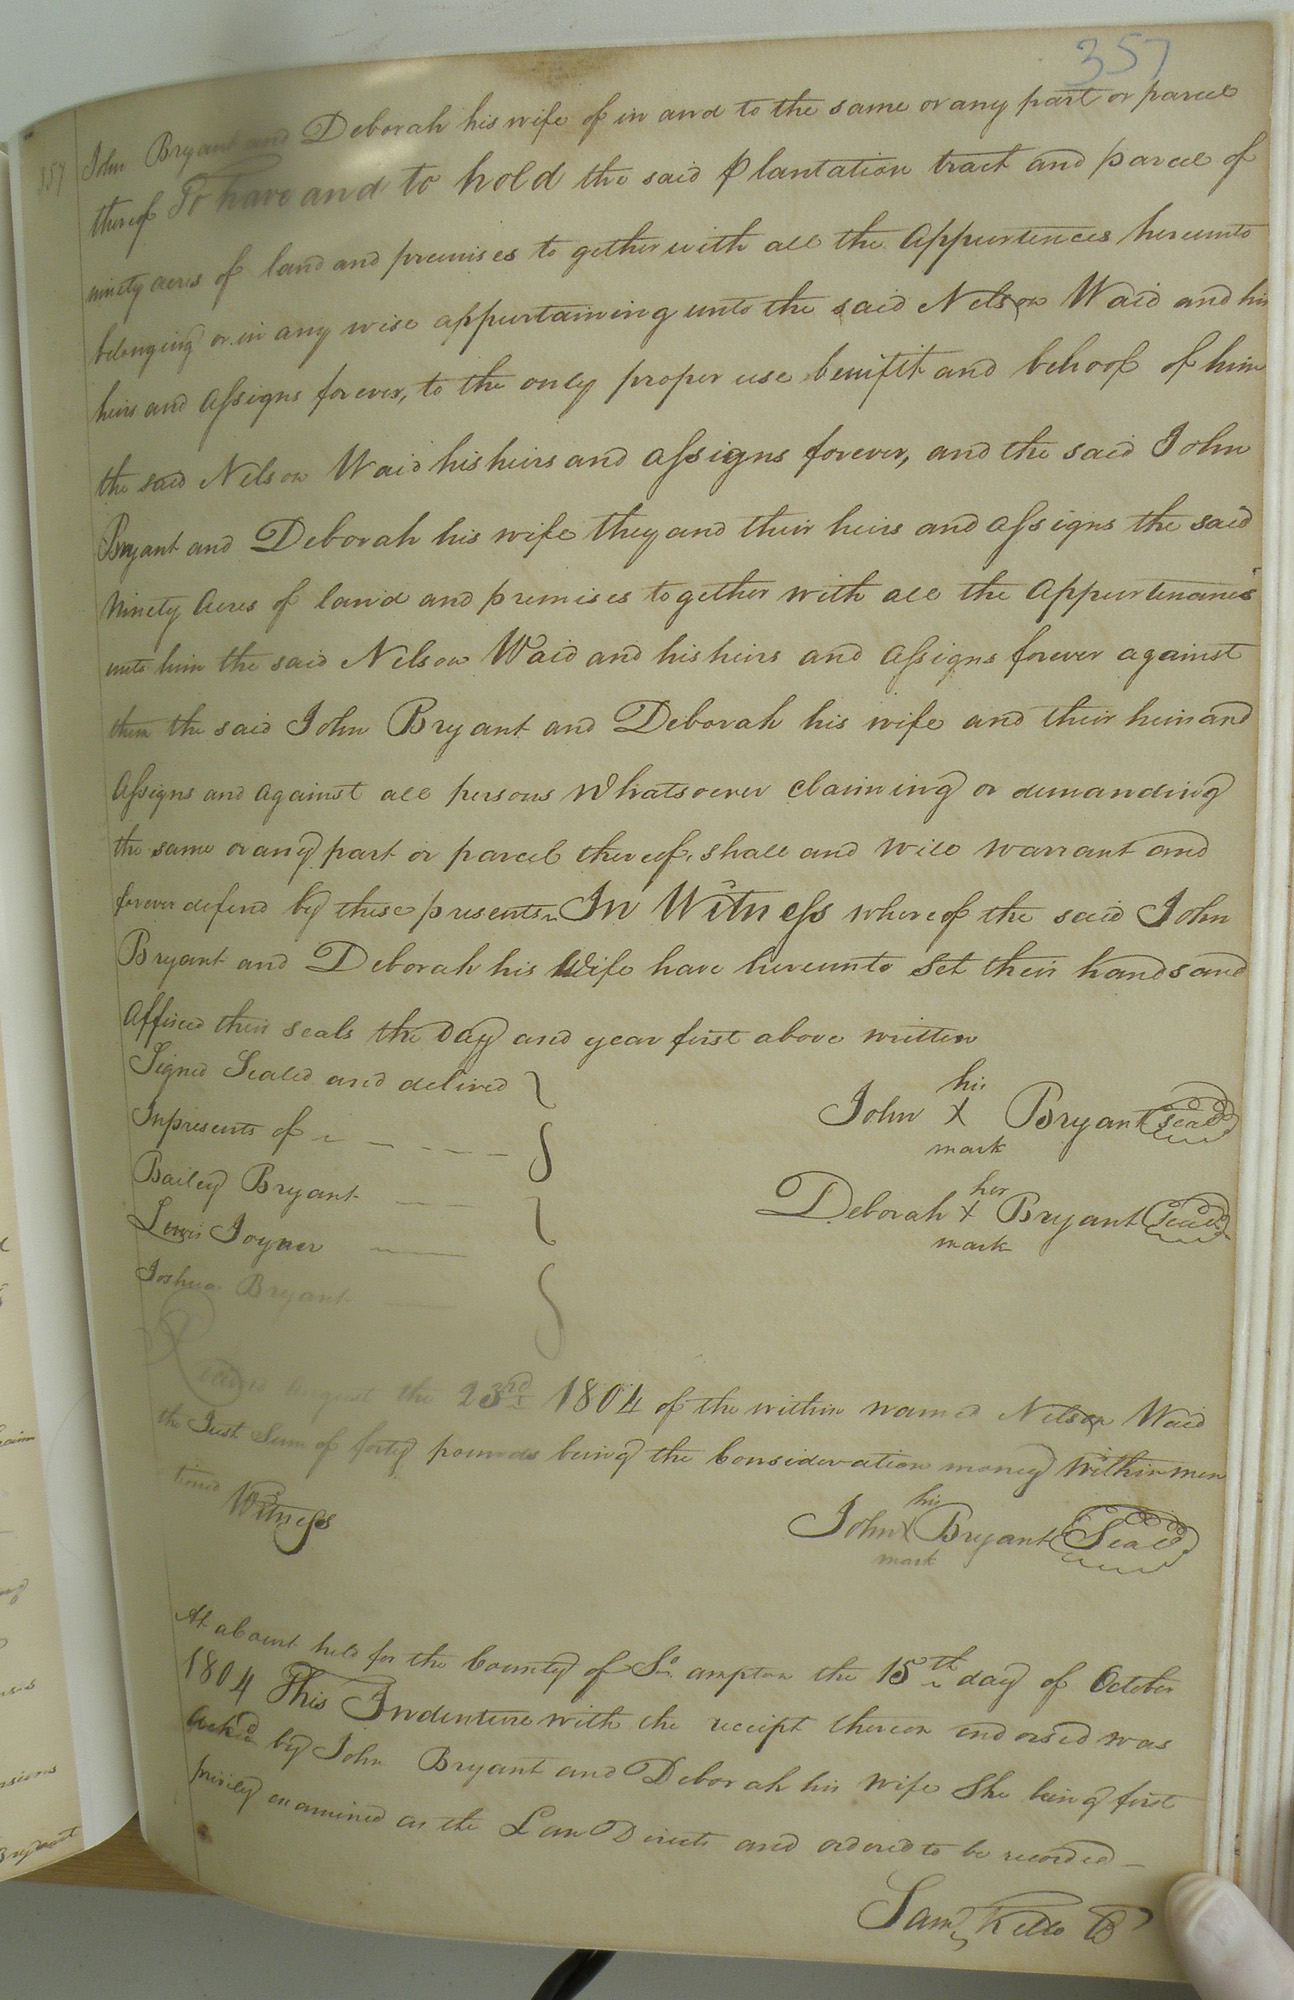 357
357 John Bryant and Deborah his wife of in and to the same or any part or parcel
thereof To have and to hold the said plantation tract and parcel of
ninety acres of land and premises to gether with all the Appurtences hereunto
belonging or in any wise appurtaining unto the said Nelson Waid and his
heirs and Assigns forever, to the only proper use benifit and behoof of him
the said Nelson Waid his heirs and Assigns forever, and the said John
Bryant and Deborah his wife they and their heirs and assigns the said
Ninety Acres of land and premises together with all the Appurtenances
unto him the said Nelson Waid and his heirs and Assigns forever against
them the said John Bryant and Deborah his wife and their heirs and
Assigns and against all persons Whatsoever claiming or demanding
the same or any part or parcel thereof, shall and will warrant and
forever defend by these presents In Witness whereof the said John
Bryant and Deborah his Wife have hereunto Set their hands and
Affixed their seals the Day and year first above written
Signed Sealed and delived
Inpresents of
Bailey Bryant
Lewis Joyner
Joshua Bryant
his
John X Bryant Seal
mark
her
Deborah X Bryant Seal
mark
Received August the 23rd 1804 of the within named Nelson Waid
the Just Sum of forty pounds being the Consideration money Within men
tioned
Witness
his
John X Bryant Seal
mark
At a Court held for the County of So. ampton the 15th day of October
1804 This Indenture with the receipt thereon endorsed was
Ackd by John Bryant and Deborah his Wife She being first
privily examined as the Law Directs and ordered to be recorded
Saml Kello
Bryant